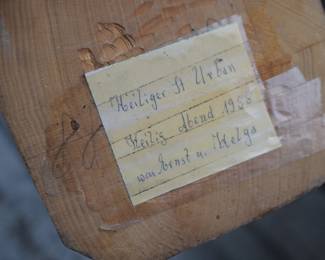 Heiliger St Urban
Heilig Abend 1980
von Ernst u. Helga